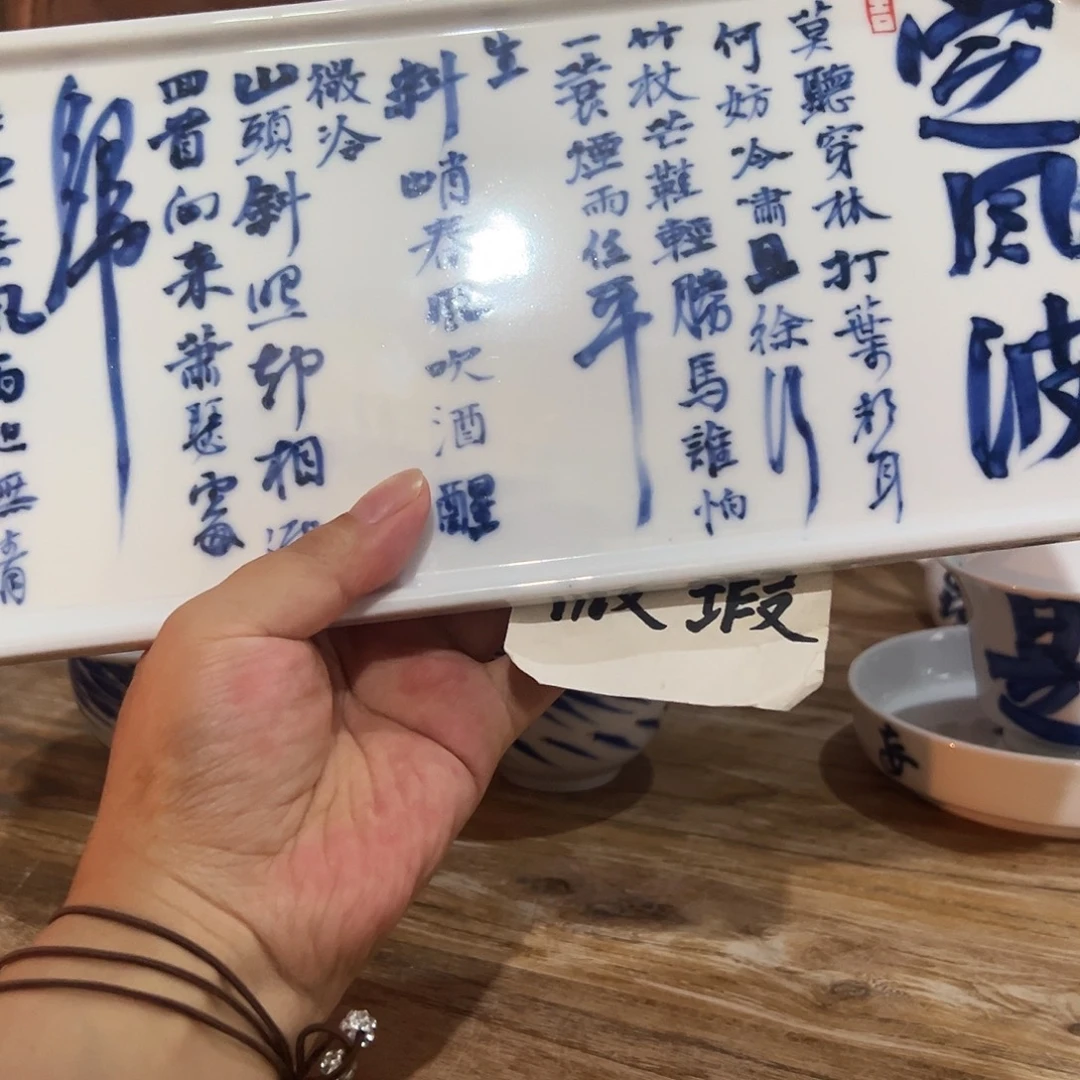 定風波
莫聽穿林打葉聲
何妨吟嘯且徐行
竹杖芒鞋輕勝馬誰怕
一蓑煙雨任平
生
料峭春風吹酒醒
微冷
山頭斜照卻相
回首向来蕭瑟處
歸
無風雨也無晴
微瑕